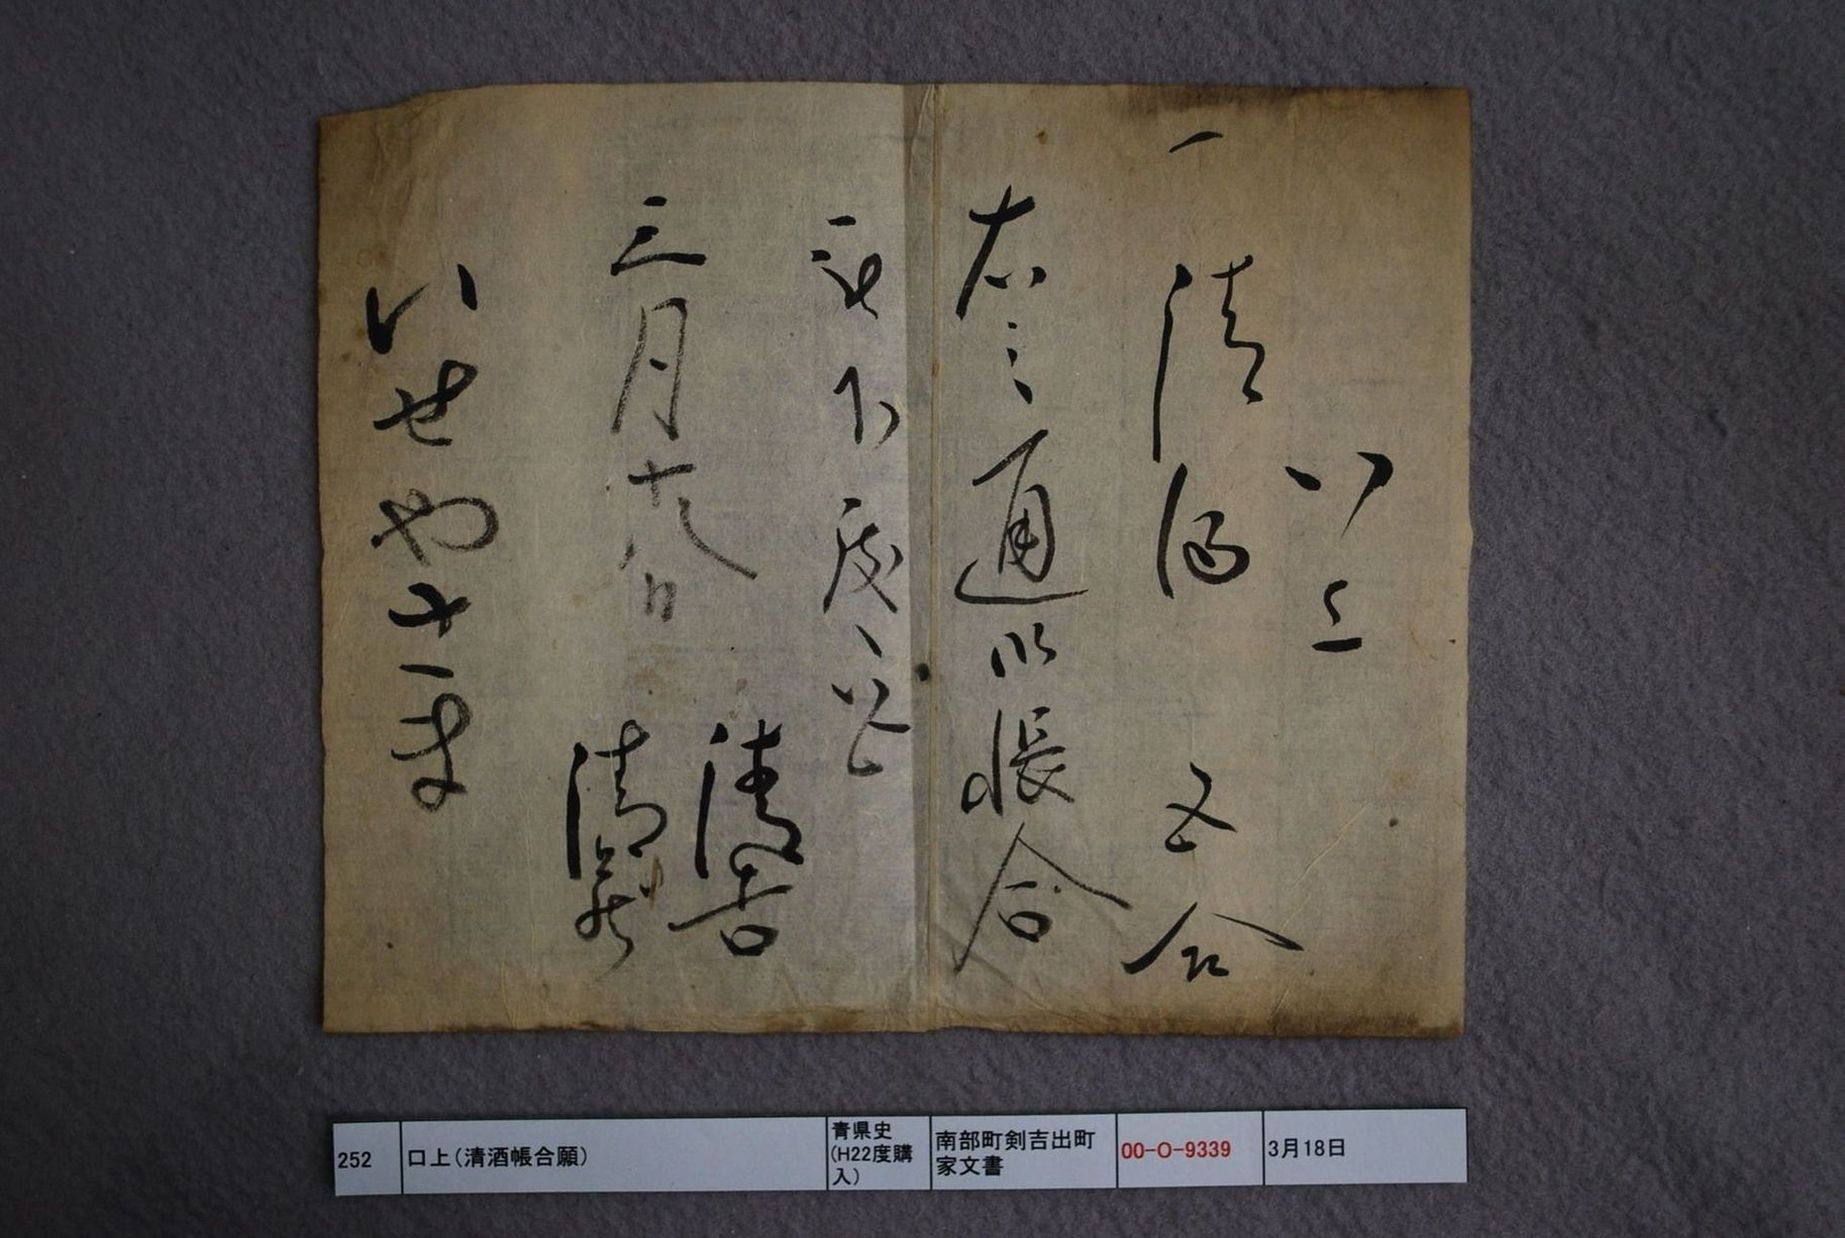 口上
一 清酒 五合
右之通御帳合
被下度候以上
三月十八日 清吉
清蔵
いせやさま
252
口上(清酒帳合願)
青県史
(H22度購
入)
南部町剣吉出町
家文書
00-O-9339
3月18日